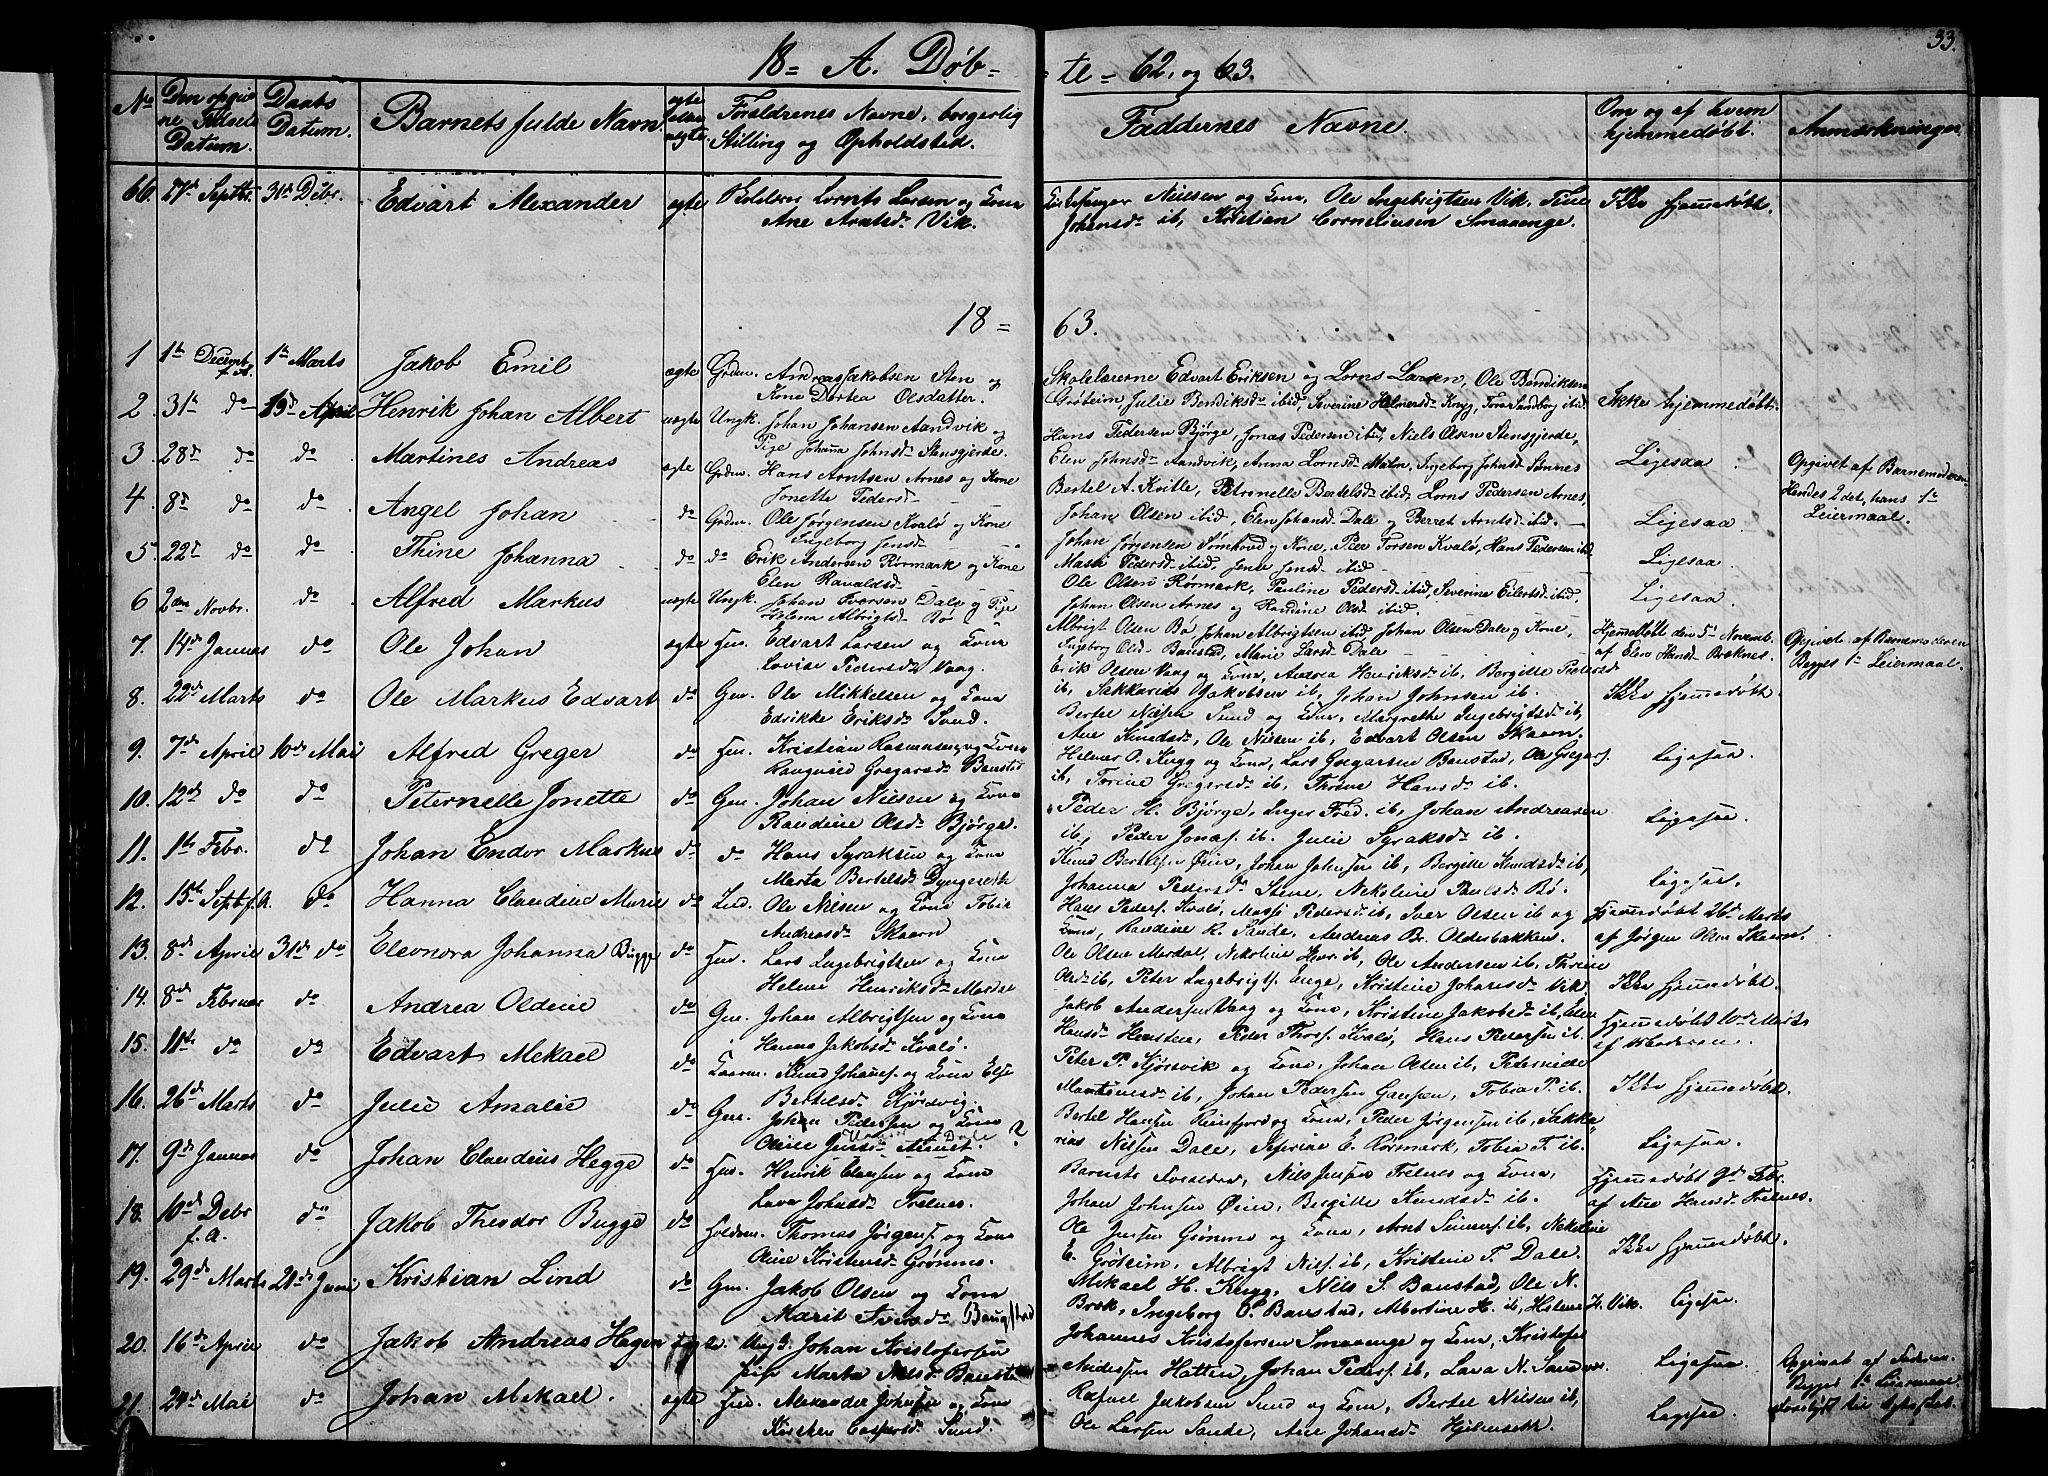 33.
18= A. Døb= te= 62, og 63.
No
Den opgiv
ne Fødsels
Datum.
Daabs
Datum.
Barnets fulde Navn
ægte
eller
uægte
Forældrenes Navne, borgerlig
Stilling og Opholdsted.
Faddernes Navne.
Om og af hvem
hjemmedøbt.
Anmærkninger
66. 27d Septbr. 31d Debr. Edvart Alexander ægte Lornts Larsen og Kona
Ane Arntsd. Vik.
Nielsen og Kona, Ole Ingebrigtsen Vik, Tine
Johansd. ib, Kristian Corneliusen Smaaenge.
Ikke hjemmedøbt.
18= 63.
1 1te Decemb. f. A. 1te Marts Jakob Emil ægte Grdm. Andreas Jakobsen Sten og
Kone Dortea Olsdatter.
Skolelærerne Edvart Eriksen og Lorns Larsen, Ole Bendiksen
Grøteim, Julie Bendiksd. ibid, Severine Helmersd. Knyg, Tore Sandberg ibid.
Ikke hjemmedøbt
2. 31te do 19d April Henrik Johan Albert uægte Ungk. Johan Johansen Aandvik og
Pige Johana Johnsd. Stensgjerde.
Hans Pedersen Bjørge, Jonas Pedersen ibid, Niels Olsen Stensgjerde,
Elen Johnsd. Aandvik, Anna Lornsd. Malm, Ingeborg Johnsd. Sømnes
Ligesaa
Opgivet af Barnemoderen
Hendes 2det, hans 1te
Leiermaal.
3. 28d do do Martines Andreas ægte Grdm. Hans Arntsen Arnes og Kone
Jonette Pedersd.
Bertel A. Kvitle, Petronelle Bertelsd. ibid, Lorns Pedersen Arnes,
Johan Olsen ibid, Elen Johansd. Dale og Berret Arntsd. ibid.
Ligesaa.
4. 8d do do Angel Johan do Grdm. Ole Jørgensen Kvalø og Kone
Ingeborg Jensd.
Johan Jørgensen Sømhovd og Kone, Peer Torsen Kvalø, Hans Pedersen ibid
Masi Pedersd. ibid, Jensd. ibid
Ligesaa.
5. 22d do do Thine Johanna do do Erik Andersen Rørmark og Kone
Elen Ravaldsd.
Ole Olsen Rørmark, Pauline Pedersd. ibid, Severine Eilertsd. ibid,
Johan Olsen Arnes og Randine Olsd. ibid.
Ligesaa.
6 2den Novbr. do Alfred Markus uægte Ungk. Johan Iversen Dale og Pige
Helena Albrigtsd. Bø
Albrigt Olsen Bø, Johan Albrigtsen ibid, Johan Olsen Dale og Kone,
Ingeborg Olsd. Baustad, Marie Larsd. Dale
Hjemedøbt den 5te Novemb.
af Elen Hansd. Breknes.
Opgivet af Barnemoderen
Begges 1te Leiermaal.
7. 14d Januar do Ole Johan ægte Edvart Larsen og Kona
Lovise Pedersd. Vaag.
Erik Olsen Vaag og Kona, Andrea Henriksd. ib, Bergitte Pedersd
ib, Sakkarias Jakobsen ib, Johan Johnsen ib.
Ikke hjemmedøbt.
8. 22d Marts do Ole Markus Edvart do Gm. Ole Mikkelsen og Kona
Edrikke Eriksd. Sund.
Bertel Sund og Kona, Margrethe Ingebrigtsd. ib,
Ane Knudsd., Ole Nilsen ib, Edvart Olsen Skaarn.
9. 7d April 10d Mai Alfred Greger do Kristian Rasmussen og Kona
Gregersd. Baustad
Helmer O. Knyg og Kona, Lars Gregersen Baustad, Ole Gregers.
ib, Torine Gregersd. ib, Thrine Hansd. ib.
Ligesaa.
10. 12d do do Peternelle Jonette do Gm. Johan Nielsen og Kona
Randine Olsd. Bjørge.
Peder H. Bjørge, Inger Fred. ib, Johan Andreasen
ib, Peder Jonas. ib. Julie Syraksd. ib.
Ligesaa.
11. 1te Febr. do Johan Endor Markus do do Hans Syraksen og Kona
Marta Bertelsd.
Knud Bertelsen Øien, Johan Johnsen ib, Bergitte Knudsd. ib,
Johanna Pedersd. Stene, Nekoline Paulsd. Bø.
Ligesaa.
12. 15te Septb. f. A. do Hanna Claudine Marie do Ind. Ole Nilsen og Kona Tobia
Andreasd. Skaarn
Hans Peders. Kvalø, Massi Pedersd. ib, Iver Olsen ib og
Kona, Randine R. Sande, Andreas Br. Oldesbakken.
Hjemmedøbt 26d Marts
af Jørgen Olsen Skaarn.
13. 8d April 31d do Eleonora Johanna Bugge do Lars Ingebrigtsen og Kona
Helene Henriksd.
Ole Olsen, Nekoline ib, Ole Andersen ib, Thrine
Olsd. ib, Peter Ingebrigts. Enge, Kristine Johansd. Vik.
Ikke hjemmedøbt.
14. 8d Februar do Andrea Oldine do Gm. Johan Albrigtsen og Kona
Hanna Jakobsd. Kvalø.
Jakob Andersen Vaag og Kona, Kristine Jakobsd. ib, Elen
Hansd. Hensten, Peder Thors. Kvalø, Hans Pedersen ib.
Hjemmedøbt 10d Marts
af Moderen.
15. 11te do do Edvart Mekael do Knud Johans. og Kona Else
Bertelsd.
Peter P. Kjørsvik og Kona, Johan Olsen ib, Peternelle
ib, Johan Pedersen, Tobia P. ib.
Ikke hjemmedøbt
16. 26d Marts do Julie Amalie do Gm. Johan Pedersen og Kona
Oline Jensd. Dale ?
Bertel Hansen og Kona, Peder Jørgensen ib, Sakka-
rias Nilsen Dale, Seferine E. Rørmark, Tobia T. ib.
Ligesaa.
17. 9d Januar do Johan Claudius Hegge do Henrik Clausen og Kona
Lava Johnsd. Trelnes.
Barnets Forældre, Nils Jensen Trelnes og Kona,
Johan Johnsen Øien, Bergitte Knudsd. ib.
Hjemmedøbt 9d Febr.
af Ane Hansd. Trelnes.
18. 10d Debr f. A. do Jakob Theodor Bugge do Thomas Jørgens. og Kona
Oline Kristensd. Grønnes.
Ole Jensen Grønnes og Kona, Arnt Simens. ib, Nekoline
E. Grøteim, Albrigt Nils. ib, Kristine T. Dale.
Ikke hjemmedøbt.
19. 29d Marts 21d Juni Kristian Lind do Gm. Jakob Olsen og Kona
Marit Iversd. Baugstad
Mikael H. Knyg, Nils S. Baustad, Ole N.
Brek, Ingeborg O. Baustad, Albertine H. ib, H. Vik.
Ligesaa.
20. 16d April do Jakob Andreas Hagen uægte. Ungk. Johan Kristofersen
Pige Marta Nilsd. Baustad
Johannes Kristofersen Smaaenge og Kona, Kristofer
Andersen Hatten, Johan Peders. ib, Lava N.
Ligesaa.
Opgivet af
Begges 1te Leiermaal
21. 24d Mai do Johan Mekael. ægte Alexander Johnsen og Kona
Kirsten Caspersd. Sund.
Rafael Jakobsen Sund og Kona, Bertel Nilsen ib,
Ole Larsen Sande, Ane Johansd.
Ligesaa.